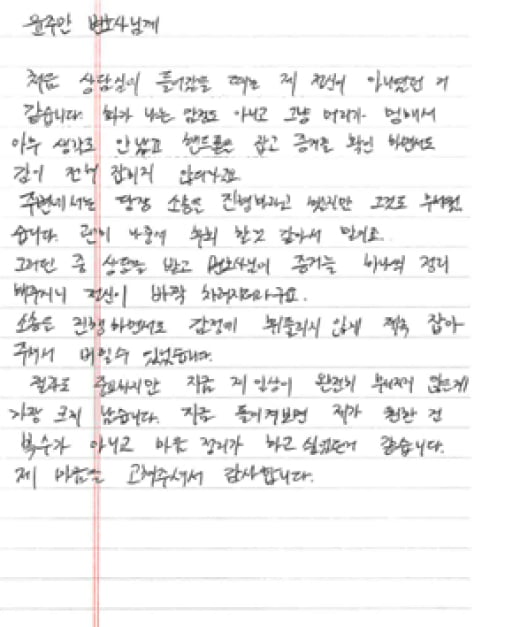 윤주만 변호사님께
처음 상담실에 들어갔을 때는 제 정신이 아니었던 거
같습니다. 화가 나는 감정도 아니고 그냥 머리가 멍해서
아무 생각도 안났고 핸드폰을 잡고 증거를 확인 하면서도
감이 전혀 잡히지 않더라구요
주변에서는 당장 소송을 진행하라고 했지만 그것도 무서웠
습니다. 괜히 나중에 후회 할것 같아서 말이죠.
그러던 중 상담을 받고 변호사님이 증거를 하나씩 정리
해주시니 정신이 바짝 차려지더라구요.
소송을 진행하면서도 감정에 휘둘리지 않게 계속 잡아
주셔서 버틸수 있었습니다.
결과도 중요하지만 지금 제 일상이 완전히 무너지지 않은게
가장 크게 남습니다. 지금 돌이켜보면 제가 원한 건
복수가 아니고 마음 정리가 하고 싶었던거 같습니다.
제 마음을 고쳐주셔서 감사합니다.